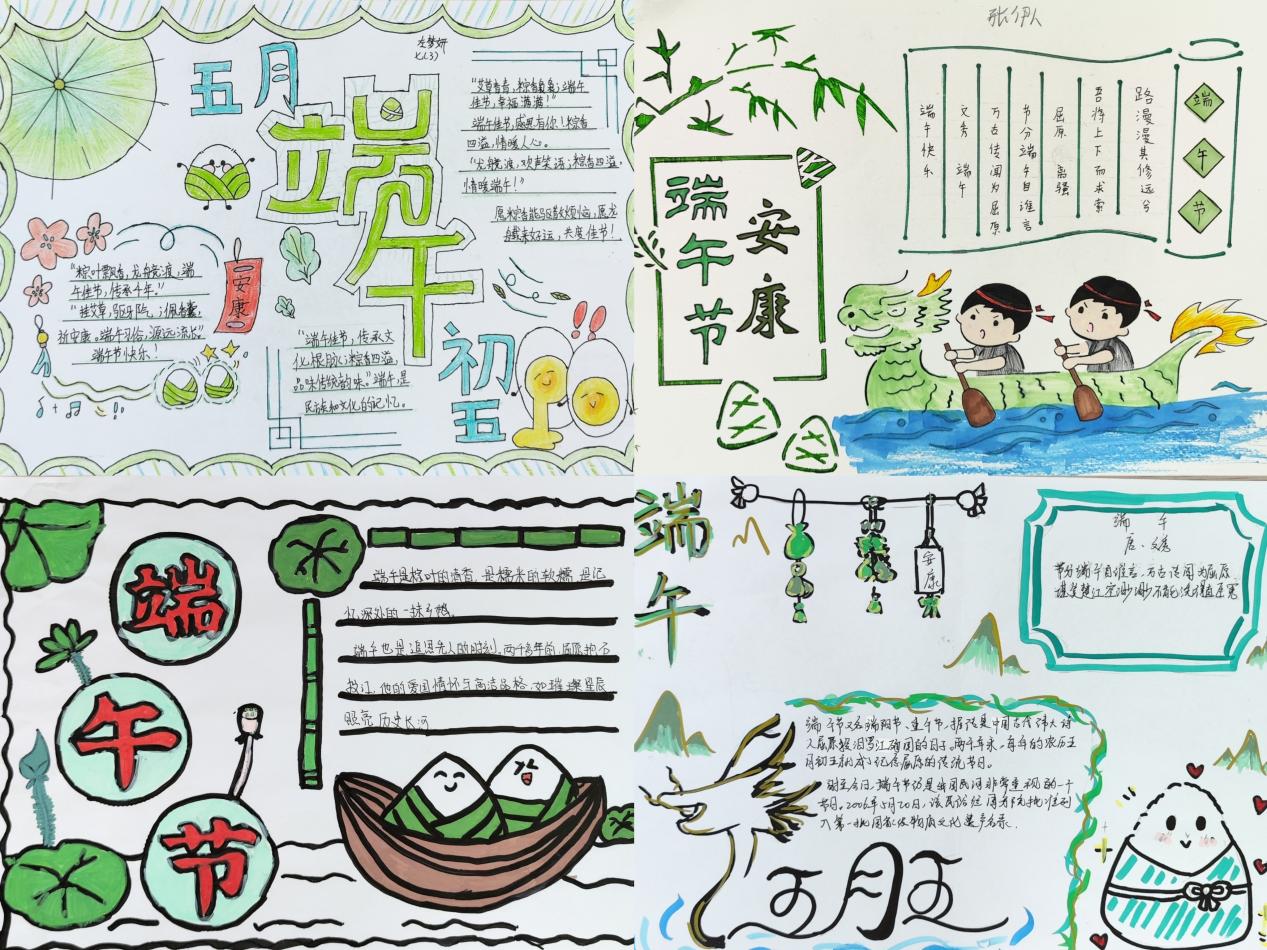 五月
端午
初五
安康
"艾草青青,粽香袅袅;端午
佳节,幸福满满!"
端午佳节,感恩有你!粽香
四溢,情暖人心。
"龙舟竞渡,欢声笑语;粽香四溢,
情暖端午!"
愿粽香能驱散烦恼,愿龙
舟载来好运,共度佳节!
"粽叶飘香,龙舟竞渡,端
午佳节,传承千年。"
"挂艾草,驱邪气,佩香囊,
祈安康。端午习俗,源远流长"
端午节快乐!
"端午佳节,传承文
化根脉;粽香四溢,
品味传统韵味。"端午,是
民族和文化的记忆。
张伊人
端午节
安康
端午节
路漫漫其修远兮
吾将上下而求索
屈原 离骚
节分端午自谁言
万古传闻为屈原
文秀 端午
端午快乐
端午节
端午是粽叶的清香,是糯米的软糯,是记
忆深处的一抹乡愁。
端午也是追思先人的时刻,两千多年前,屈原抱石
投江,他的爱国情怀与高洁品格,如璀璨星辰
照亮历史长河
端午
安康
端 午
唐·文秀
节分端午自谁言,万古传闻为屈原
堪笑楚江空渺渺,不能洗得直臣冤
端午节又名端阳节、重午节,据传是中国古代伟大诗
人屈原投汨罗江殉国的日子。两千年来,每年的农历五
月初五就成了纪念屈原的传统节日。
时至今日,端午节仍是我国民间非常重视的一个
节日。2006年5月20日,该民俗经国务院批准列
入第一批国家级物质文化遗产名录.
五月五